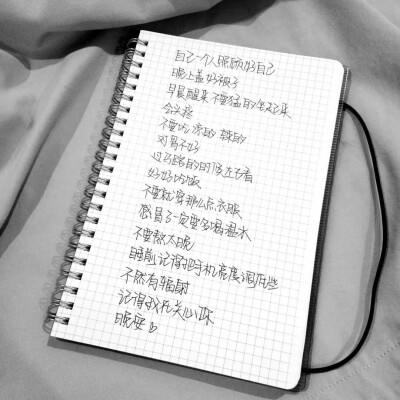 自己一个人照顾好自己
晚上盖好被子
早晨醒来不要猛的坐起来
会头疼
不要吃凉的 辣的
对胃不好
过马路的时候左右看
好好吃饭
不要就穿那么点衣服
感冒了一定要多喝温水
不要熬太晚
睡前记得把手机亮度调低些
不然有辐射
记得我在关心你
晚安